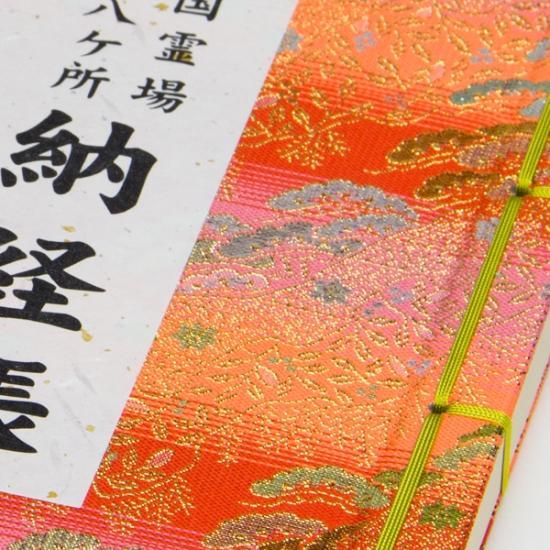 国霊場
八ケ所
納経帳